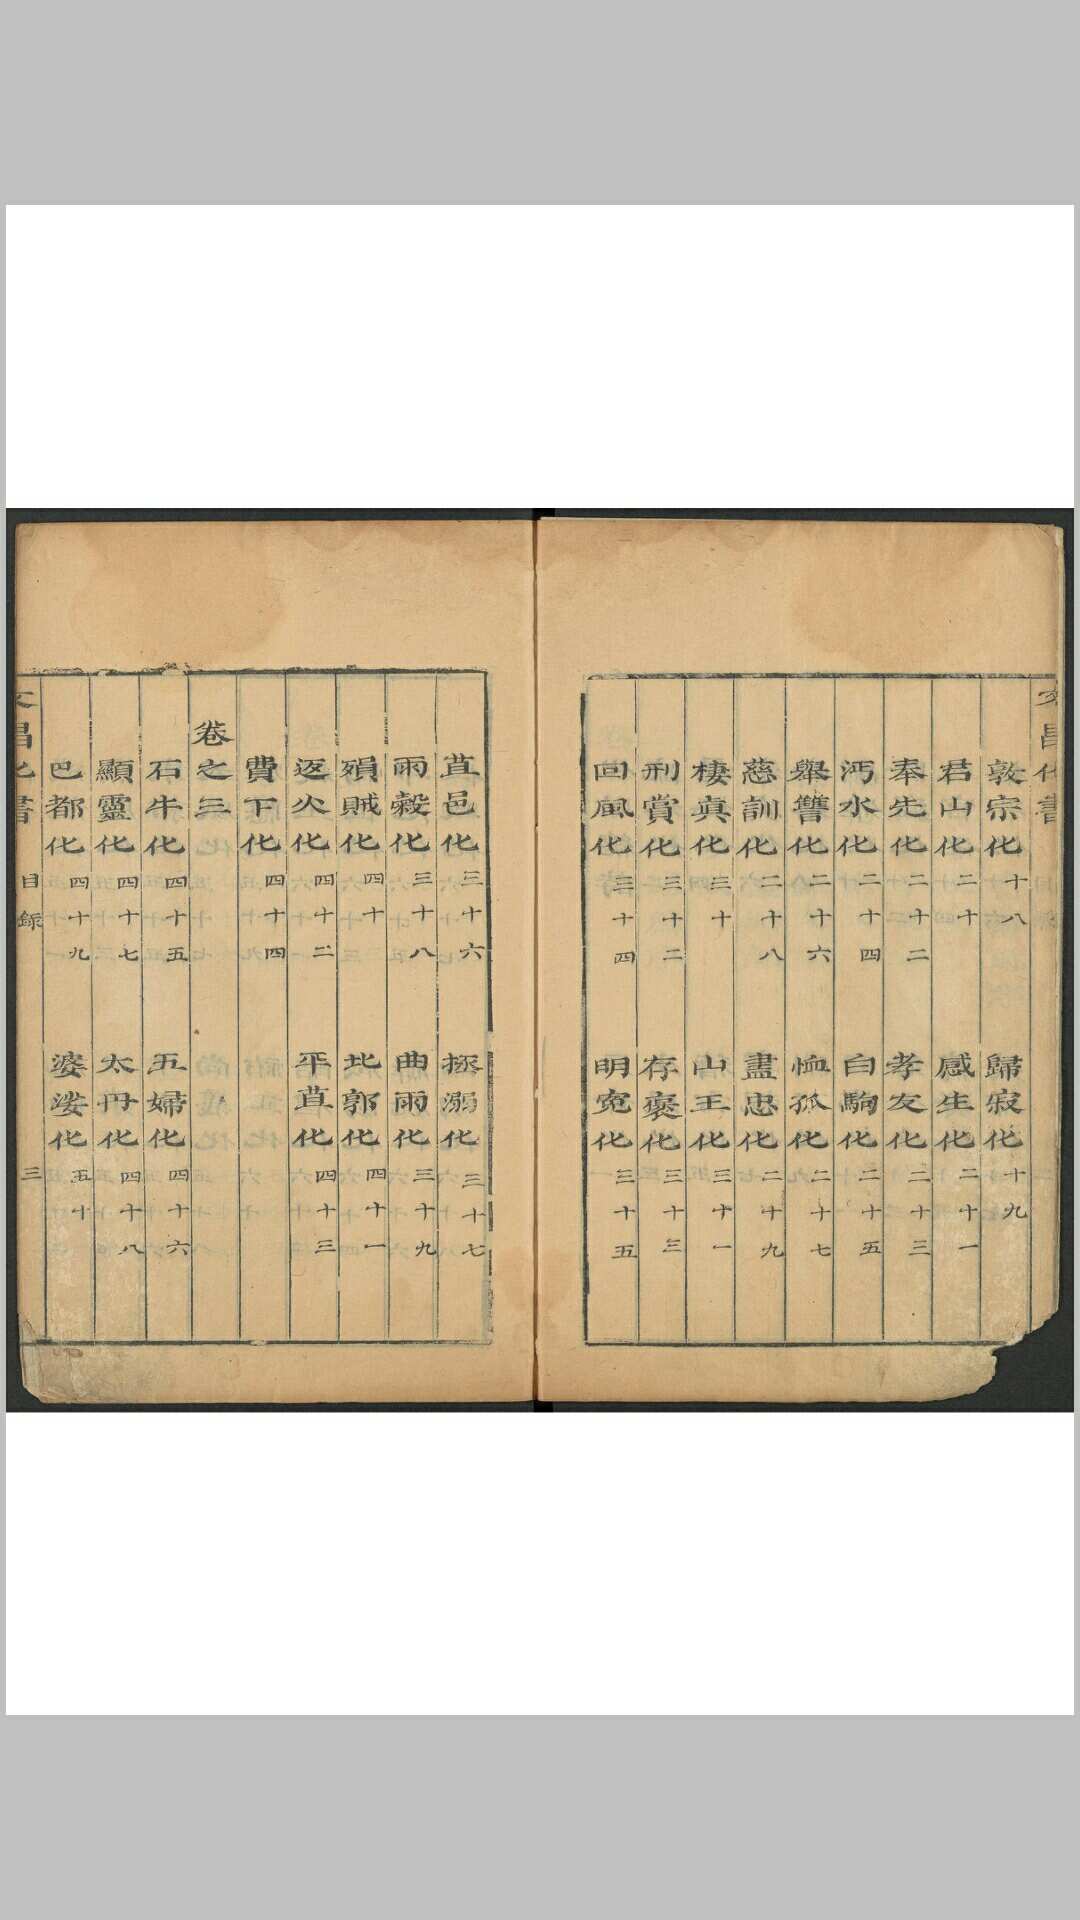 文昌化書
敦宗化十八 歸寂化十九
君山化二十 感生化二十一
奉先化二十二 孝友化二十三
沔水化二十四 白駒化二十五
舉讐化二十六 恤孤化二十七
慈訓化二十八 盡忠化二十九
棲真化三十 山王化三十一
刑賞化三十二 存褒化三十三
回風化三十四 明冤化三十五
苴邑化三十六 拯溺化三十七
雨穀化三十八 曲雨化三十九
殞賊化四十 北郭化四十一
返火化四十二 平苴化四十三
費丁化四十四
卷之三
石牛化四十五 五婦化四十六
顯靈化四十七 太丹化四十八
巴都化四十九 婆娑化五十
文昌化書 目錄 三